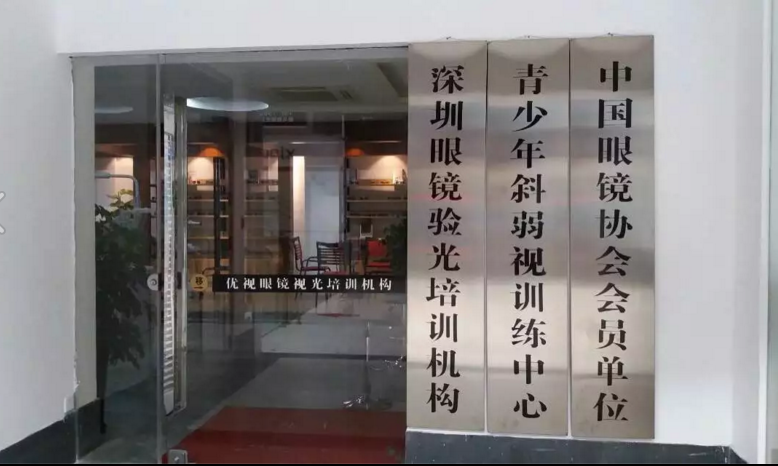 深圳眼镜验光培训机构
青少年斜弱视训练中心
中国眼镜协会会员单位
优视眼镜视光培训机构